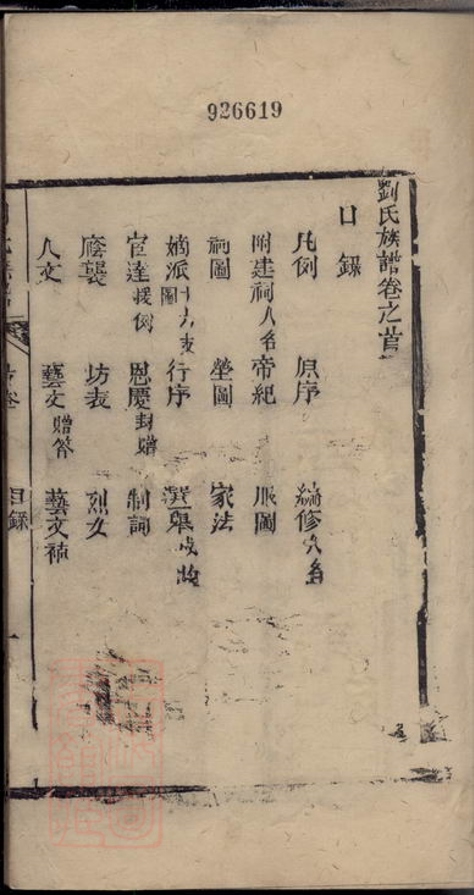 926619
劉氏族譜卷之首
目錄
凡例 原序 編修人名
附建祠人名 帝紀 服圖
祠圖 塋圖 家法
嫡派圖十六支 行序 選舉
宦達援例 恩慶封贈 制詞
廕襲 坊表 烈女
人文 藝文贈答 藝文補
首卷 目錄 一